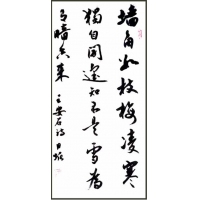 墙角数枝梅凌寒
獨自開遥知不是雪為
有暗香来 王安石诗